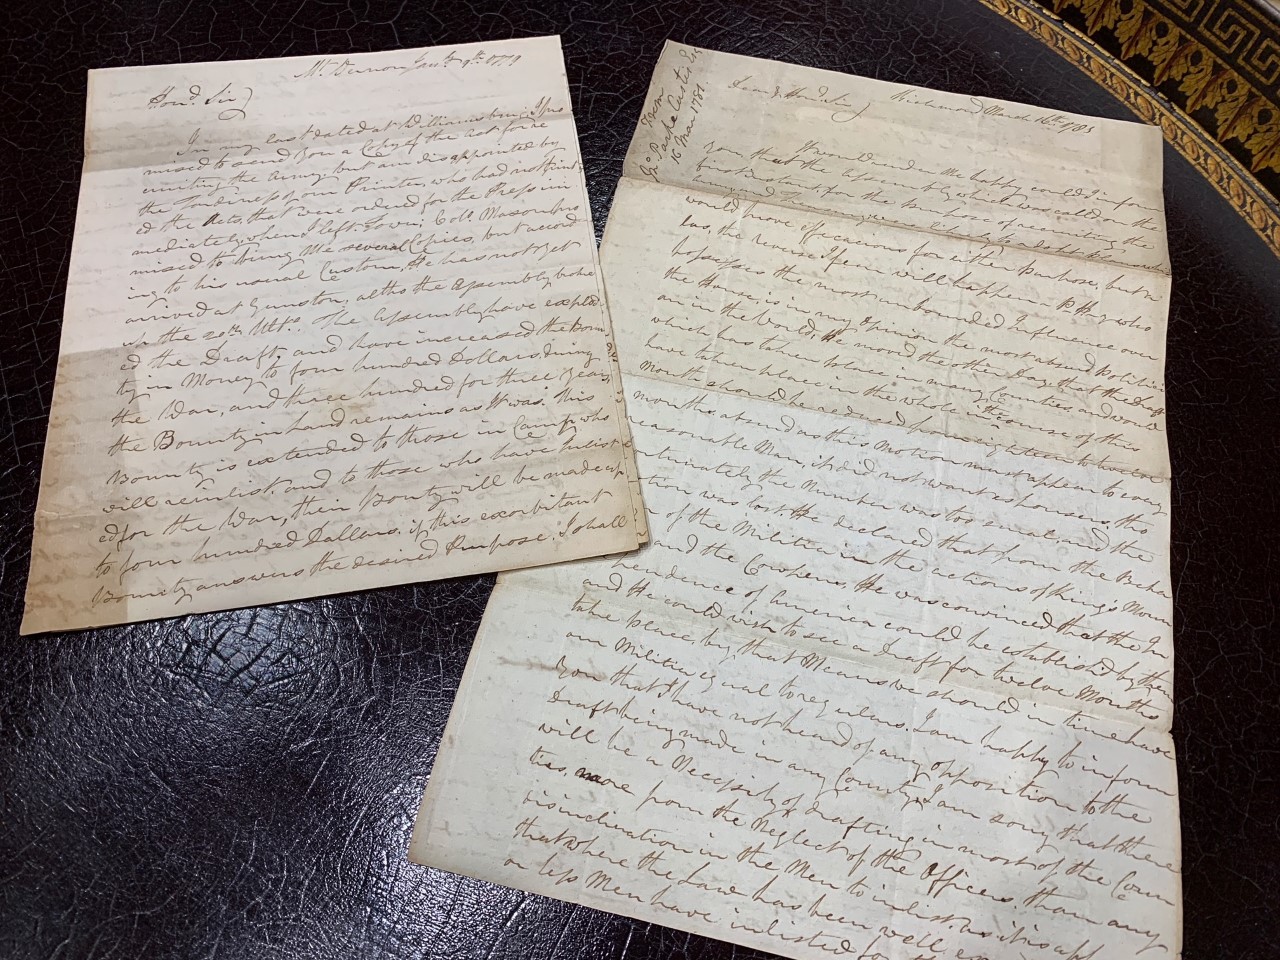 Mt. Vernon Jany. 9th 1779
Hond. Sir
In my last dated at Williamsburg, I pro
mised to send you a Copy of the Act for re
cruiting the Army, but am disappointed by
the Tardiness of our Printer, who had not print
ed the Acts, that were ordered for the Press im
mediately, when I left Town. Colo. Mason pro
mised to bring Me several Copies, but accord
ing to his usual Custom, He has not yet
arrived at Gunston, altho the Assembly broke
up the 20th Ulto. The Assembly have explod
ed the Draft, and have increased the Boun
ty in Money to four hundred Dollars during
the War, and three hundred for three years,
the Bounty in Land remains as it was. This
Bounty is extended to those in Camp, who
will reinlist, and to those who have inlist
ed for the War, their Bounty will be made up
to four hundred Dollars. if this exorbitant
Bounty answers the desired Purpose, I shall
From
Jno. Parke Custis Esq
16 Mar 1781
Hond. Sir Richmond March 16th 1781
I would render me happy could I inform
you that the
first
would prove efficacious for either purpose, but a
las, the reverse I fear will happen. P Hy. who
possesses the most unbounded Influence over
the House, is in my Opinion the most absurd politici
an in the World, He moved the other day that the Draft
which has taken place in many Counties, and would
have taken place in the whole in the course of this
Month should be reduced from eighteen to twelve
months, absurd as this Motion must appear to every
reasonable Man, it did not want
the Number was too small and the
was lost. He declared that from the Beha
of the Militia in the actions of Kings Moun
and the Cowpens, He was convinced that the In
pendence of America could be established by them
and He could wish to see a Draft for twelve Months
take place, by that Means we should in time have
our Militia equal to regulars. I am happy to inform
you that I have not heard of any opposition to the
Draft being made in any County. I am sorry that there
will be a Necessity of Drafting in most of the Coun
ties, more from the Neglect of the Officers, than any
disinclination in the Men to inlist, as it is
that where the Law has been well
or less Men have inlisted for the